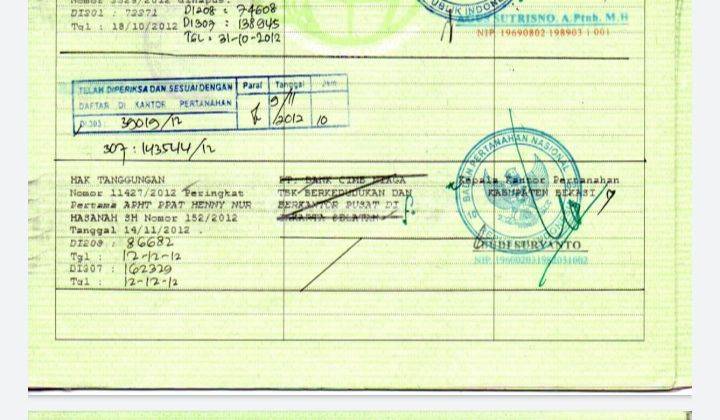 DI208 : 74608
DI301 : 73371
DI307 : 138945
Tgl : 18/10/2012
TGL : 31-10-2012
PUBLIK INDONESIA
AGUS SUTRISNO, A.Ptnh. M.H
NIP. 19690802 198903 1 001
TELAH DIPERIKSA DAN SESUAI DENGAN
DAFTAR DI KANTOR PERTANAHAN
Paraf
Tanggal
Jam
DI.305 : 39019/12
9/11
/2012
10
307 : 143544/12
HAK TANGGUNGAN
Nomor 11427/2012 Peringkat
Pertama APHT PPAT HENNY NUR
HASANAH SH Nomor 152/2012
Tanggal 14/11/2012 .
DI208 : 86682
Tgl : 12-12-12
DI307 : 162329
Tgl : 12-12-12
PT. BANK CIMB NIAGA
TBK BERKEDUDUKAN DAN
BERKANTOR PUSAT DI
JAKARTA SELATAN
Kepala Kantor Pertanahan
KABUPATEN BEKASI
BADAN PERTANAHAN NASIONAL
REPUBLIK INDONESIA
BUDI SURYANTO